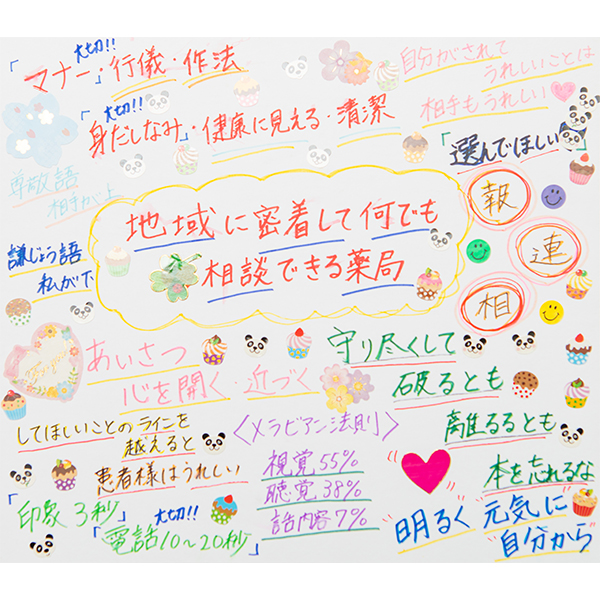 大切!!
「マナー」・行儀・作法
大切!!
「身だしなみ」・健康に見える・清潔
自分がされて
うれしいことは
相手もうれしい
「選んでほしい」
尊敬語
相手が上
謙じょう語
私が下
地域に密着して何でも
相談できる薬局
報
連
相
あいさつ
心を開く 近づく
守り尽くして
破るとも
離るるとも
本を忘れるな
してほしいことのラインを
越えると
患者様はうれしい
〈メラビアン法則〉
視覚55%
聴覚38%
話内容7%
「印象3秒」
大切!!
「電話10〜20秒」
明るく 元気に
自分から